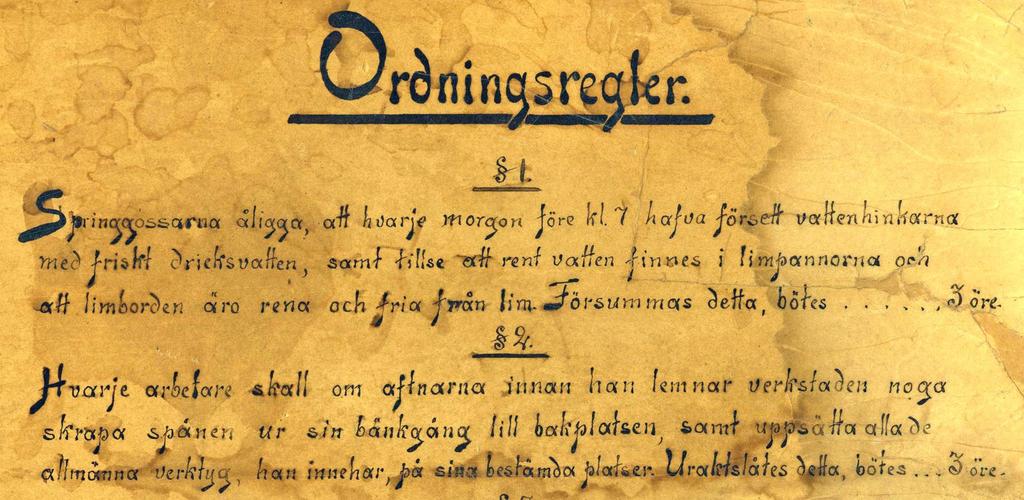 Ordningsregler.
§ 1.
Springgossarna åligga, att hvarje morgon före kl. 7 hafva försett vattenhinkarna
med friskt dricksvatten, samt tillse att rent vatten finnes i limpannorna och
att limborden äro rena och fria från lim. Försummas detta, bötes . . . . . . . 3 öre.
§ 2.
Hvarje arbetare skall om aftnarna innan han lemnar verkstaden noga
skrapa spånen ur sin bänkgång till bakplatsen, samt uppsätta alla de
allmänna verktyg, han innehar, på sina bestämda platser. Uraktslåtes detta, bötes . . . 3 öre.